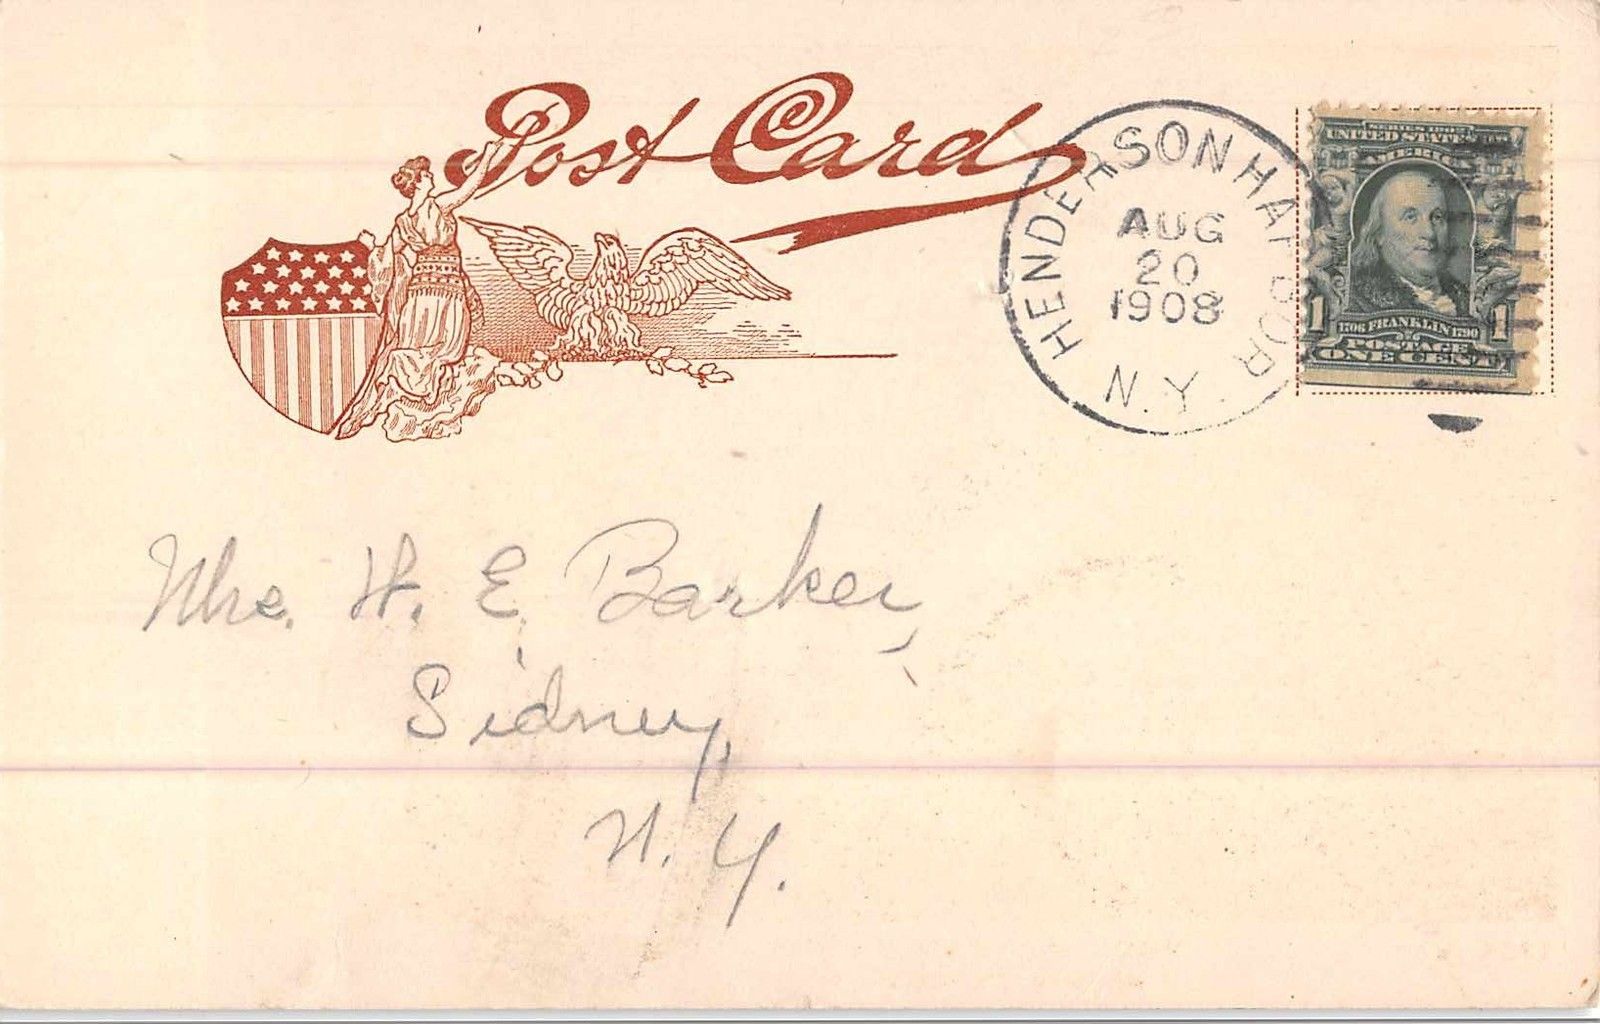 Post Card
HENDERSON HARBOR
AUG
20
1908
N.Y.
SERIES 1902
UNITED STATES OF
AMERICA
1 1706 FRANKLIN 1790 1
POSTAGE
ONE CENT
Mrs. H. E. Barker,
Sidney,
N. Y.